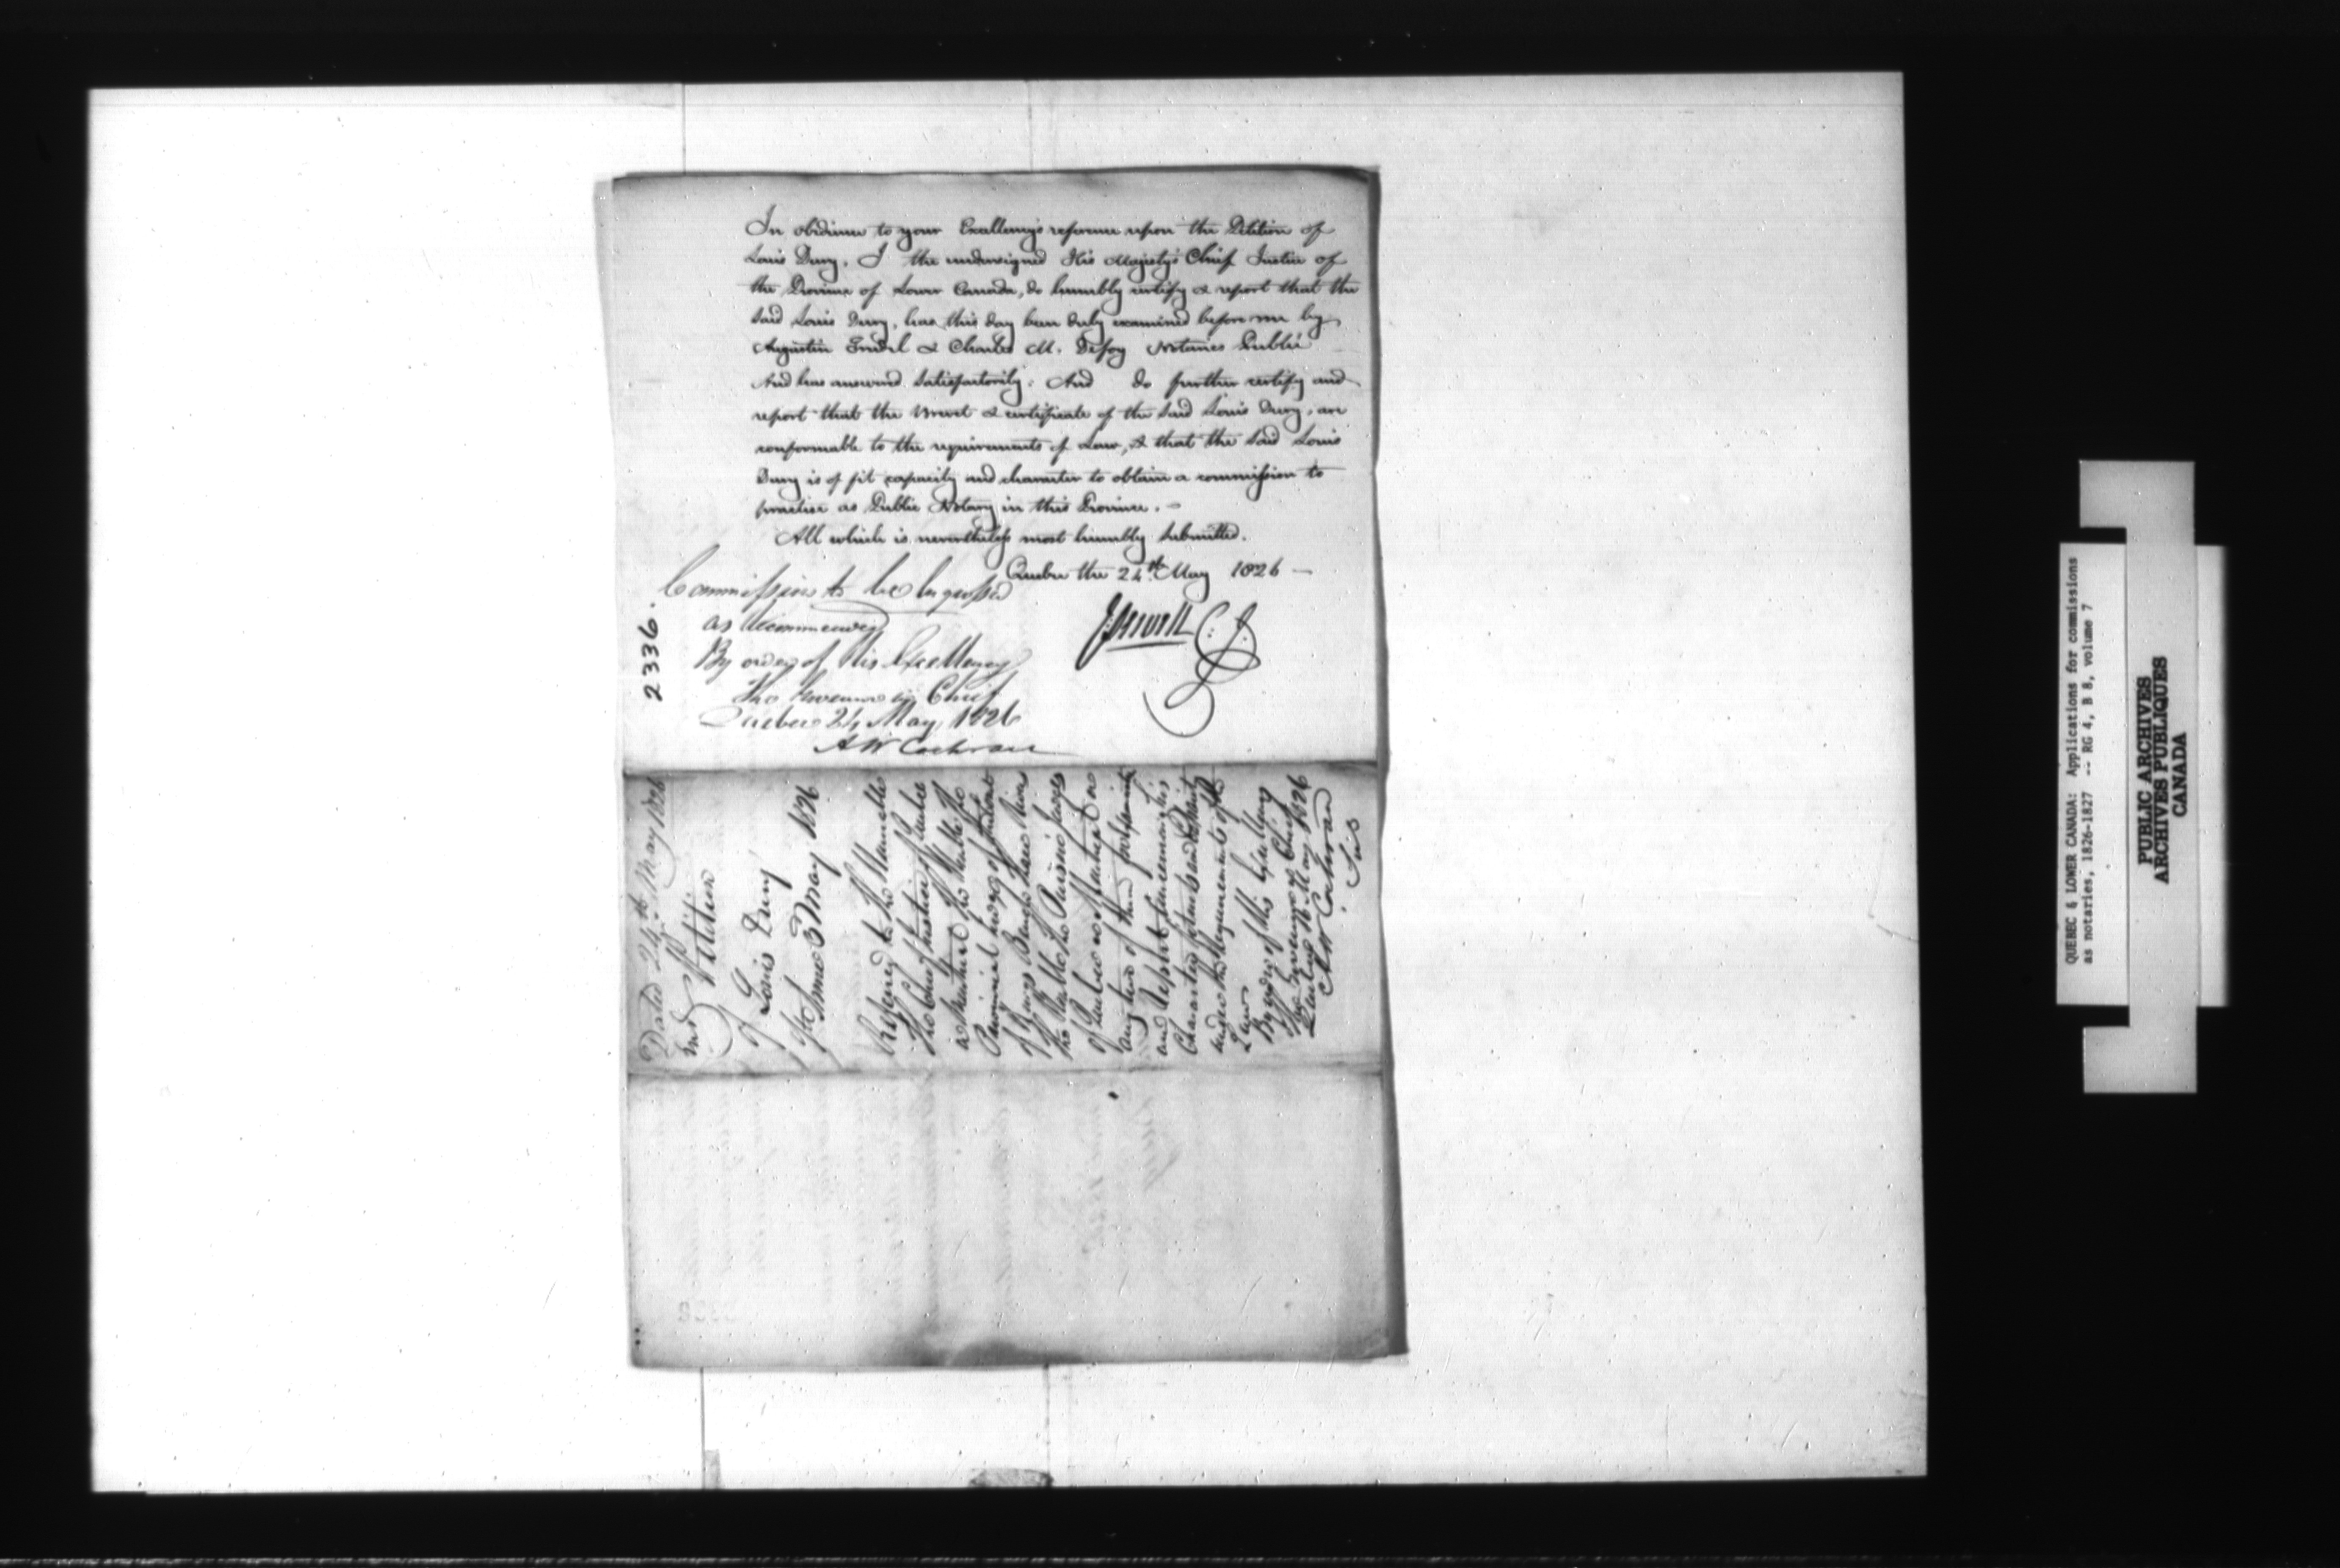 In obedience to your Excellency's reference upon the Petition of
Louis Dury, I the undersigned His Majesty's Chief Justice of
the Province of Lower Canada, do humbly certify & report that the
said Louis Dury, has this day been duly examined before me by
Augustin & Charles M. Defoy Notaries Public
And has answered satisfactorily: And do further certify and
report that the Brevet & certificate of the said Louis Dury, are
conformable to the requirements of Law, & that the said Louis
Dury is of fit capacity and character to obtain a commission to
practise as Public Notary in this Province. -
All which is nevertheless most humbly submitted.
Quebec the 24th May 1826 -
J Sewell C: J.
Commission to be Engrossed
as Recommended
By order of His Excellency
The Governor in Chief
Quebec 24 May 1826
A W Cochran
2336.
Dated 24th May 1826
Petition
of Louis Dury
3 May 1826
Referred to the Honorable
The Chief Justice of Quebec
The Honble The
Provincial Judge of
The Honble The Puisne Judges
of Quebec or Montreal or
any two of them for examination
and Report concerning his
Character
under the Requirements of the
Law.
By order of His Excellency
The Governor in Chief
Quebec 16 May 1826
A W Cochran
Sec
QUEBEC & LOWER CANADA: Applications for commissions
as notaries, 1826-1827 -- RG 4, B 8, volume 7
PUBLIC ARCHIVES
ARCHIVES PUBLIQUES
CANADA